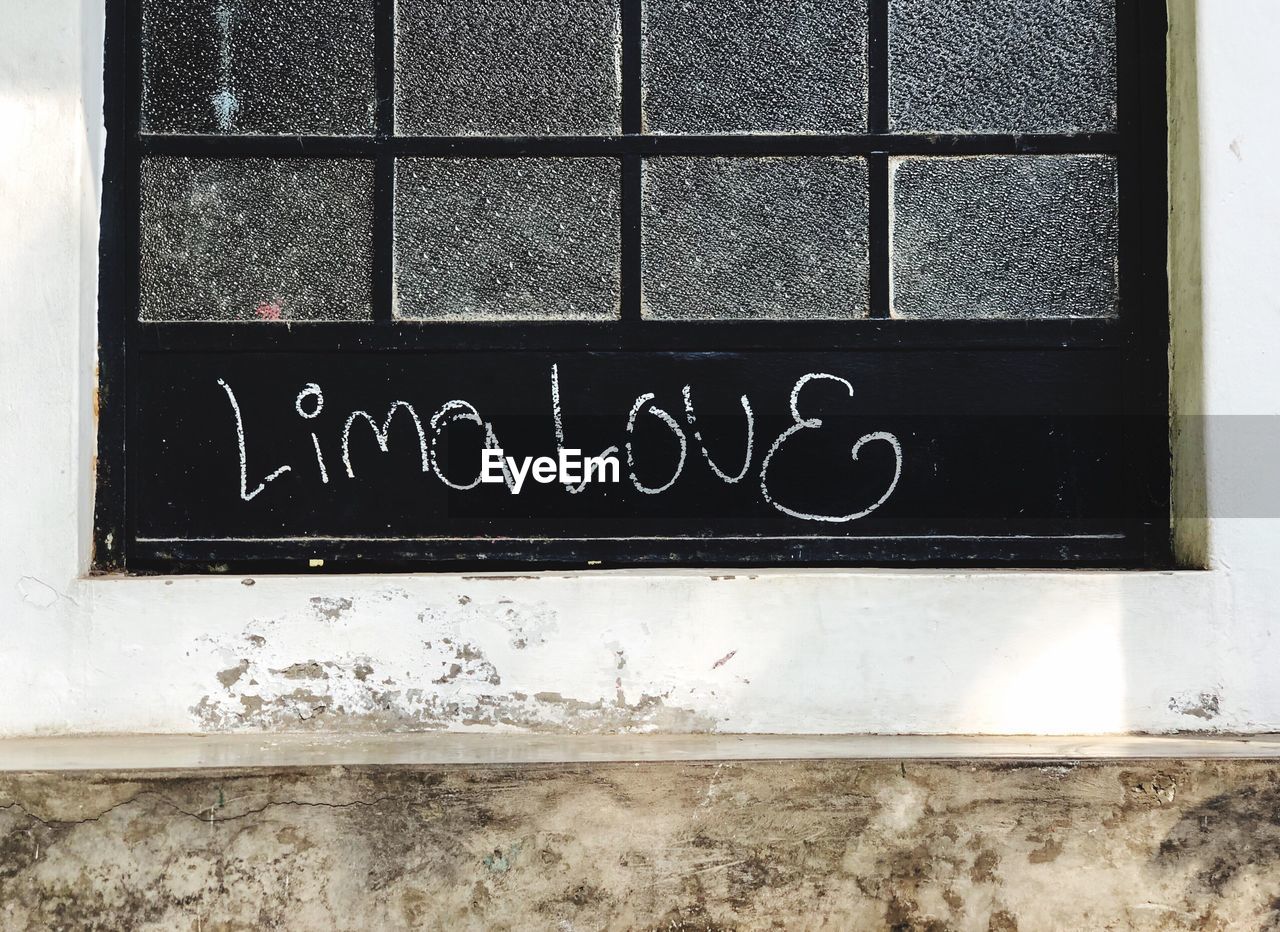 Lima Love
EyeEm